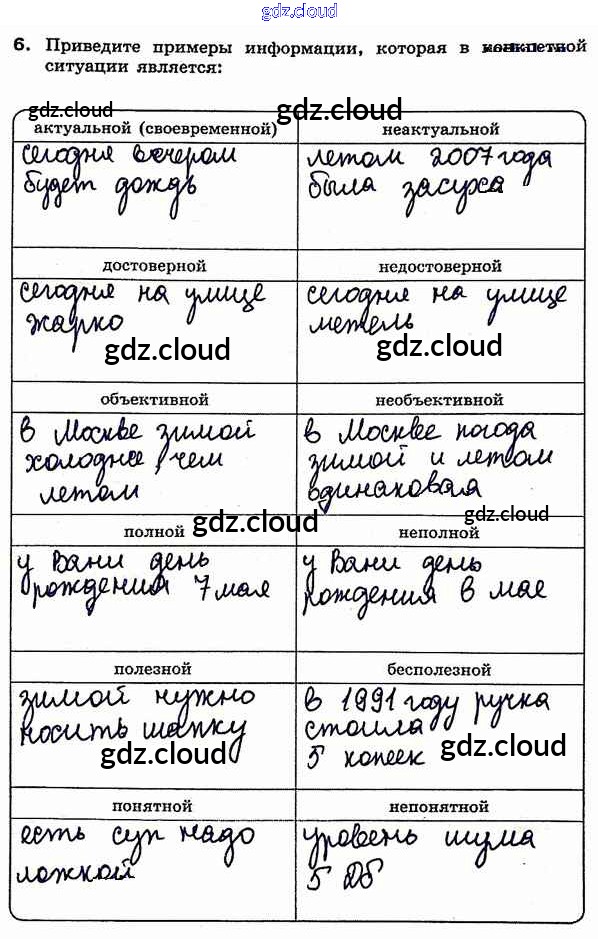 gdz.cloud
6. Приведите примеры информации, которая в конкретной
ситуации является:
gdz.cloud
gdz.cloud
актуальной (своевременной)
сегодня вечером
будет дождь
неактуальной
летом 2007 года
была засуха
достоверной
сегодня на улице
жарко
gdz.cloud
недостоверной
сегодня на улице
метель
gdz.cloud
объективной
в Москве зимой
холоднее, чем
летом
необъективной
в Москвее погода
зимой и летом
одинаковая
gdz.cloud
полной
gdz.cloud
у Вани день
рождения 7 мая
неполной
у Вани день
рождения в мае
полезной
зимой нужно
носить шапку
gdz.cloud
бесполезной
в 1991 году ручка
стоила
5 копеек
gdz.cloud
понятной
есть суп надо
ложкой
непонятной
уровень шума
5 Дб